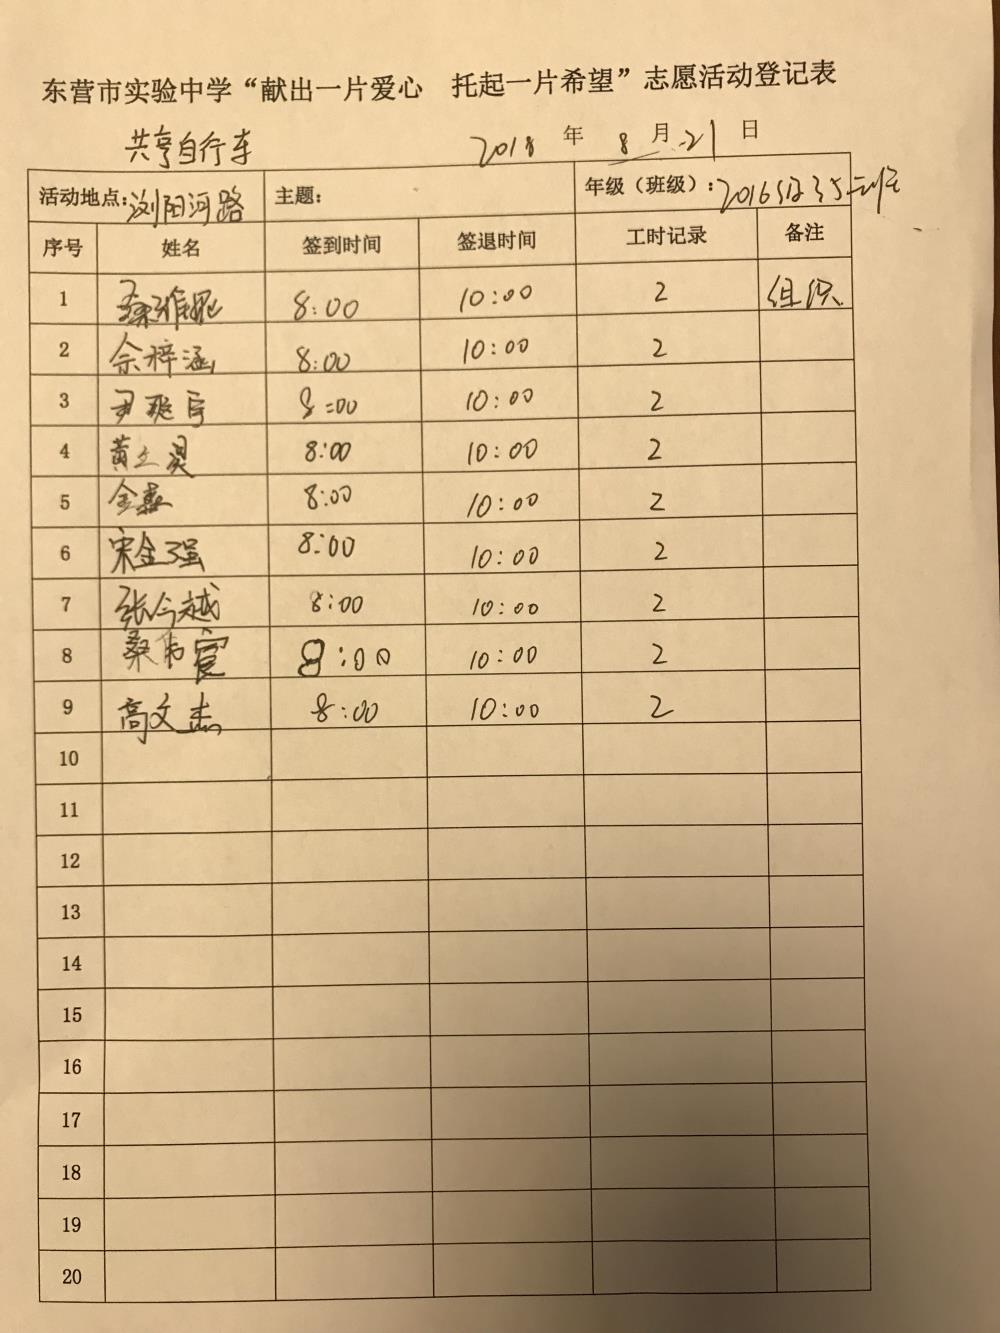 东营市实验中学“献出一片爱心 托起一片希望”志愿活动登记表
共享自行车 2018 年 8 月 21 日
活动地点：浏阳河路 主题： 年级（班级）：2016级35
序号 姓名 签到时间 签退时间 工时记录 备注
1 8:00 10:00 2 组织
2 佘梓涵 8:00 10:00 2
3 尹 8:00 10:00 2
4 黄立昊 8:00 10:00 2
5 金鑫 8:00 10:00 2
6 宋金强 8:00 10:00 2
7 张今越 8:00 10:00 2
8 桑 8:00 10:00 2
9 高文杰 8:00 10:00 2
10
11
12
13
14
15
16
17
18
19
20